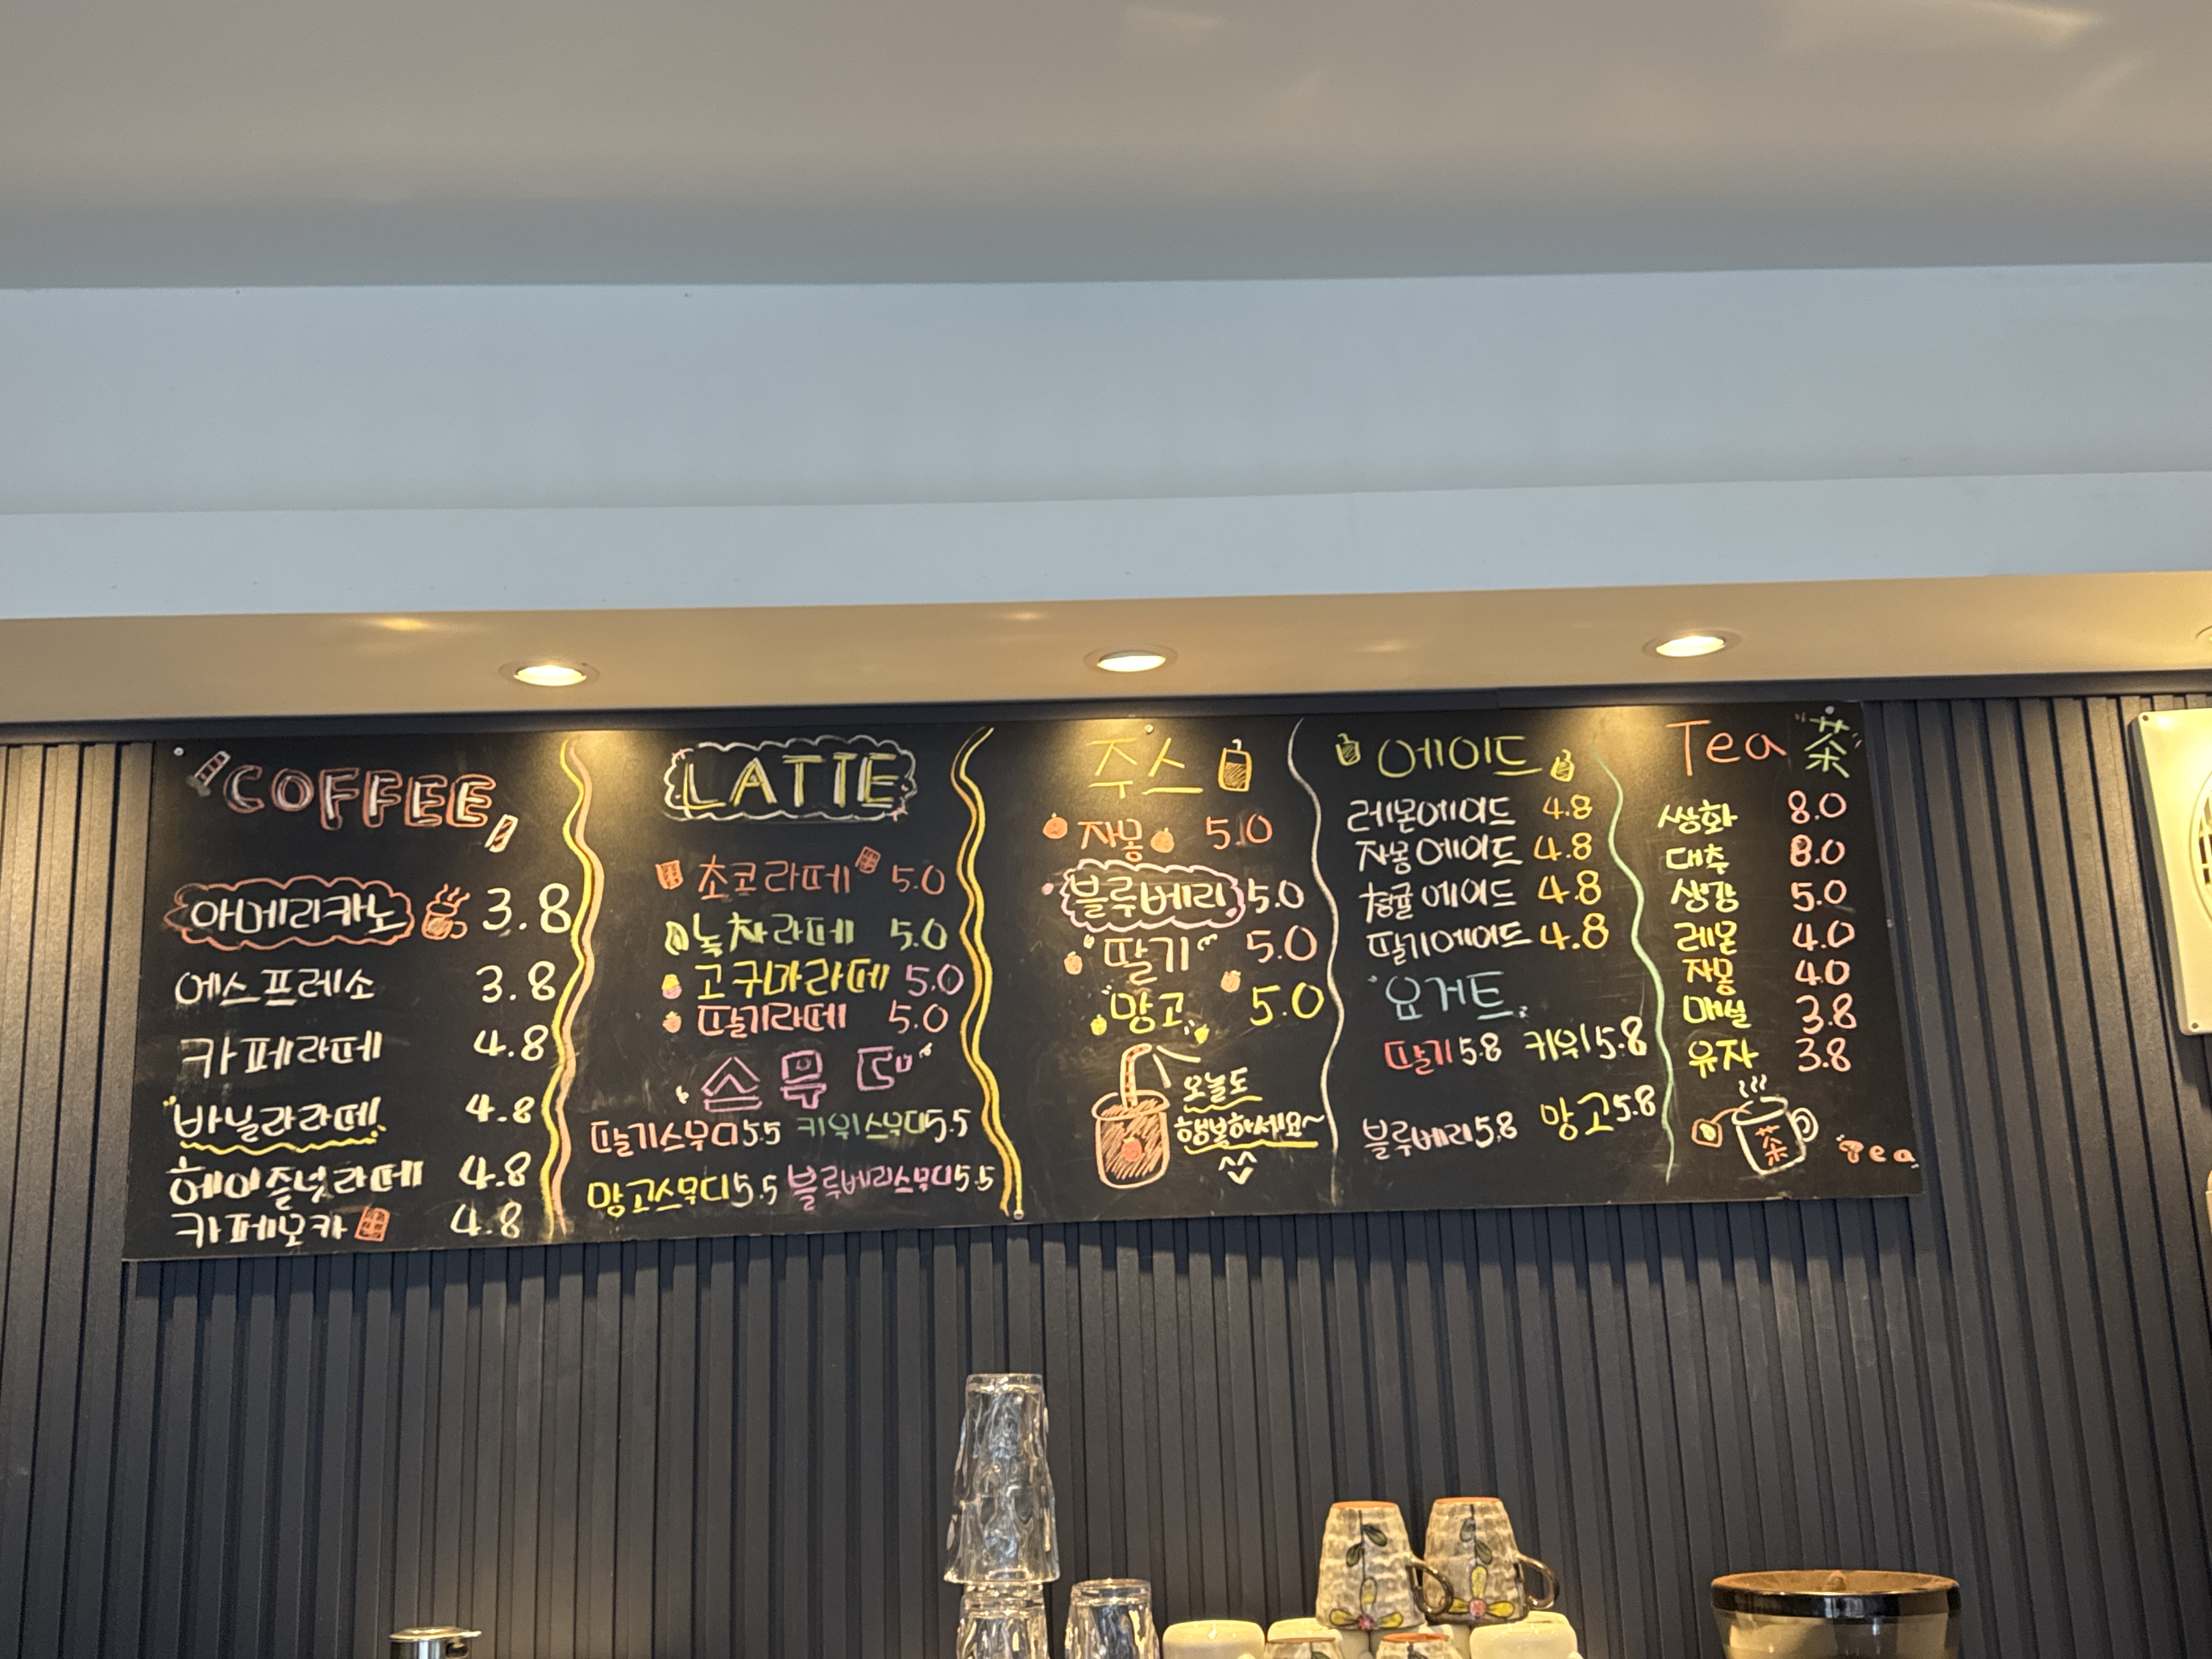 COFFEE
아메리카노 3.8
에스프레소 3.8
카페라떼 4.8
바닐라라떼 4.8
헤이즐넛라떼 4.8
카페모카 4.8
LATTE
초코라떼 5.0
녹차라떼 5.0
고구마라떼 5.0
딸기라떼 5.0
스무디
딸기스무디 5.5 키위스무디 5.5
망고스무디 5.5 블루베리스무디 5.5
주스
자몽 5.0
블루베리 5.0
딸기 5.0
망고 5.0
오늘도
행복하세요~
^^
에이드
레몬에이드 4.8
자몽에이드 4.8
청귤에이드 4.8
딸기에이드 4.8
요거트
딸기 5.8 키위 5.8
블루베리 5.8 망고 5.8
Tea "茶"
쌍화 8.0
대추 8.0
생강 5.0
레몬 4.0
자몽 4.0
매실 3.8
유자 3.8
茶
Tea